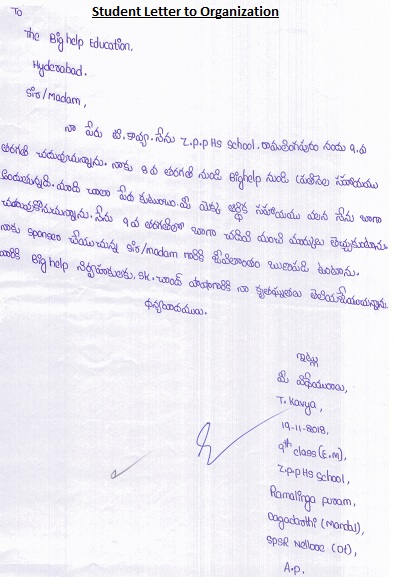 Student Letter to Organization
To
The Big help Education,
Hyderabad.
Sir/Madam,
నా పేరు టి. కావ్య. నేను Z.p.p Hs School, రామలింగపురం నందు 9.వ
తరగతి చదువుచున్నాను. నాకు 8 వ తరగతి నుండి Bighelp నుండి సహాయము
అందుచున్నది. మాది చాలా పేద కుటుంబం. మీ యొక్క ఆర్థిక సహాయము వలన నేను బాగా
చదువుకొనుచున్నాను. నేను 9 వ తరగతిలో బాగా చదివి మంచి మార్కులు తెచ్చుకుంటాను.
నాకు sponser చేయుచున్న sir/madam గారికి జీవితాంతం ఋణపడి ఉంటాను.
Big help నిర్వాహకులకు, sk. చాంద్ గారికి నా కృతజ్ఞతలు తెలియజేయుచున్నాను.
ధన్యవాదములు.
ఇట్లు
మీ విధేయురాలు,
T. Kavya,
19-11-2018,
9th class (E.M),
Z.p.p Hs School,
Ramalinga puram,
Dagadarthi (Mandal),
SPSR Nellore (Dt),
A.p.